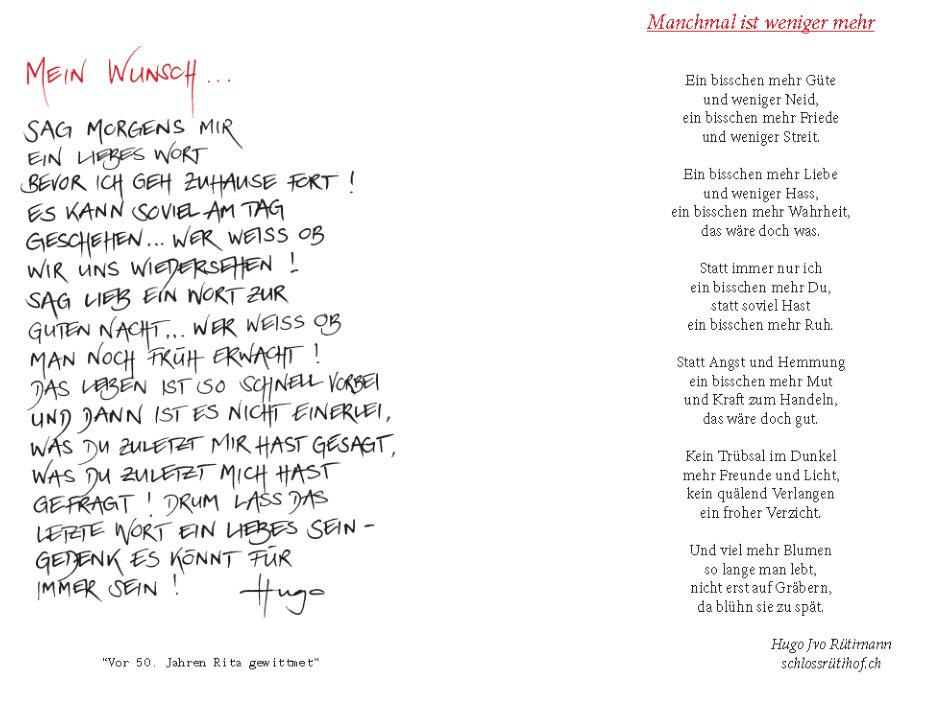 MEIN WUNSCH...
SAG MORGENS MIR
EIN LIEBES WORT
BEVOR ICH GEH ZUHAUSE FORT !
ES KANN SOVIEL AM TAG
GESCHEHEN... WER WEISS OB
WIR UNS WIEDERSEHEN !
SAG LIEB EIN WORT ZUR
GUTEN NACHT... WER WEISS OB
MAN NOCH FRÜH ERWACHT !
DAS LEBEN IST SO SCHNELL VORBEI
UND DANN IST ES NICHT EINERLEI,
WAS DU ZULETZT MIR HAST GESAGT,
WAS DU ZULETZT MICH HAST
GEFRAGT ! DRUM LASS DAS
LETZTE WORT EIN LIEBES SEIN -
GEDENK ES KÖNNT FÜR
IMMER SEIN !
Hugo
"Vor 50. Jahren Rita gewittmet"
Manchmal ist weniger mehr
Ein bisschen mehr Güte
und weniger Neid,
ein bisschen mehr Friede
und weniger Streit.
Ein bisschen mehr Liebe
und weniger Hass,
ein bisschen mehr Wahrheit,
das wäre doch was.
Statt immer nur ich
ein bisschen mehr Du,
statt soviel Hast
ein bisschen mehr Ruh.
Statt Angst und Hemmung
ein bisschen mehr Mut
und Kraft zum Handeln,
das wäre doch gut.
Kein Trübsal im Dunkel
mehr Freunde und Licht,
kein quälend Verlangen
ein froher Verzicht.
Und viel mehr Blumen
so lange man lebt,
nicht erst auf Gräbern,
da blühn sie zu spät.
Hugo Jvo Rütimann
schlossrütihof.ch